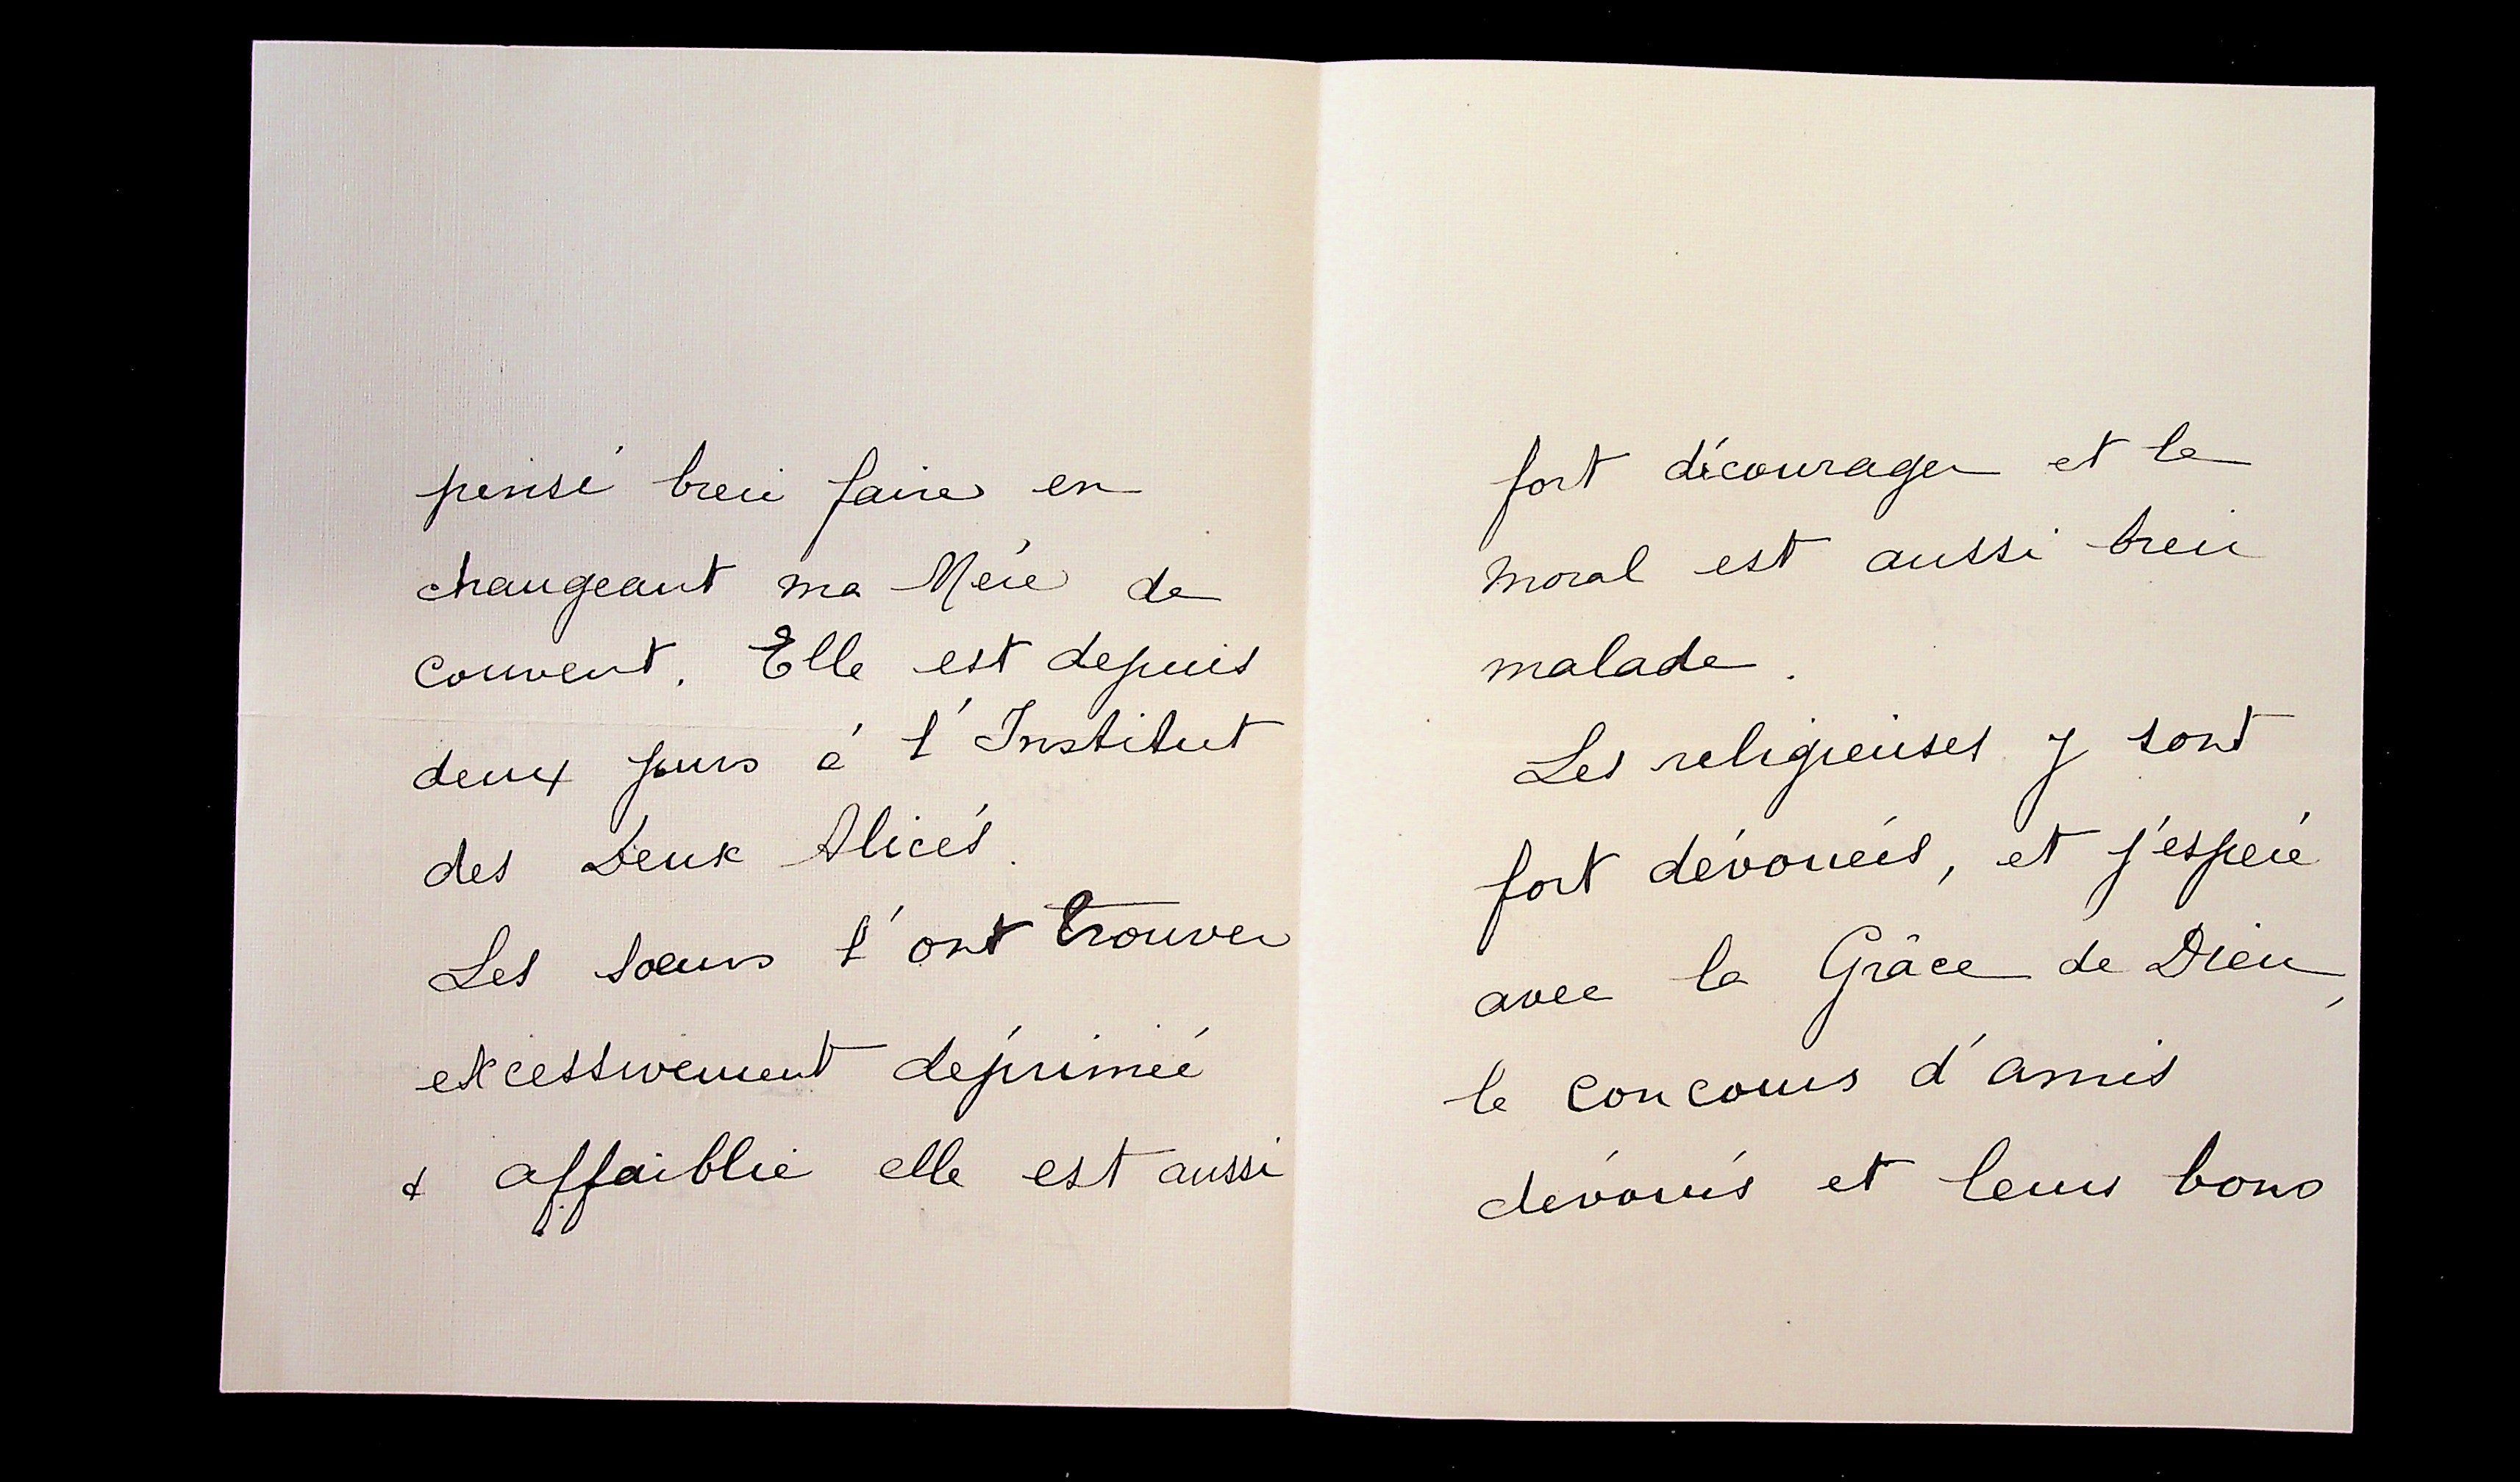 pensé bien faire en
changeant ma Mère de
couvent. Elle est depuis
deux jours à l'Institut
des Deux Alices.
Les sœurs l'ont trouver
excessivement deprimée
& affaiblie elle est aussi
fort décourager et le
moral est aussi bien
malade.
Les religieuses y sont
fort dévouées, et j'espère
avec la Grâce de Dieu,
le concours d'amis
dévoués et leurs bons